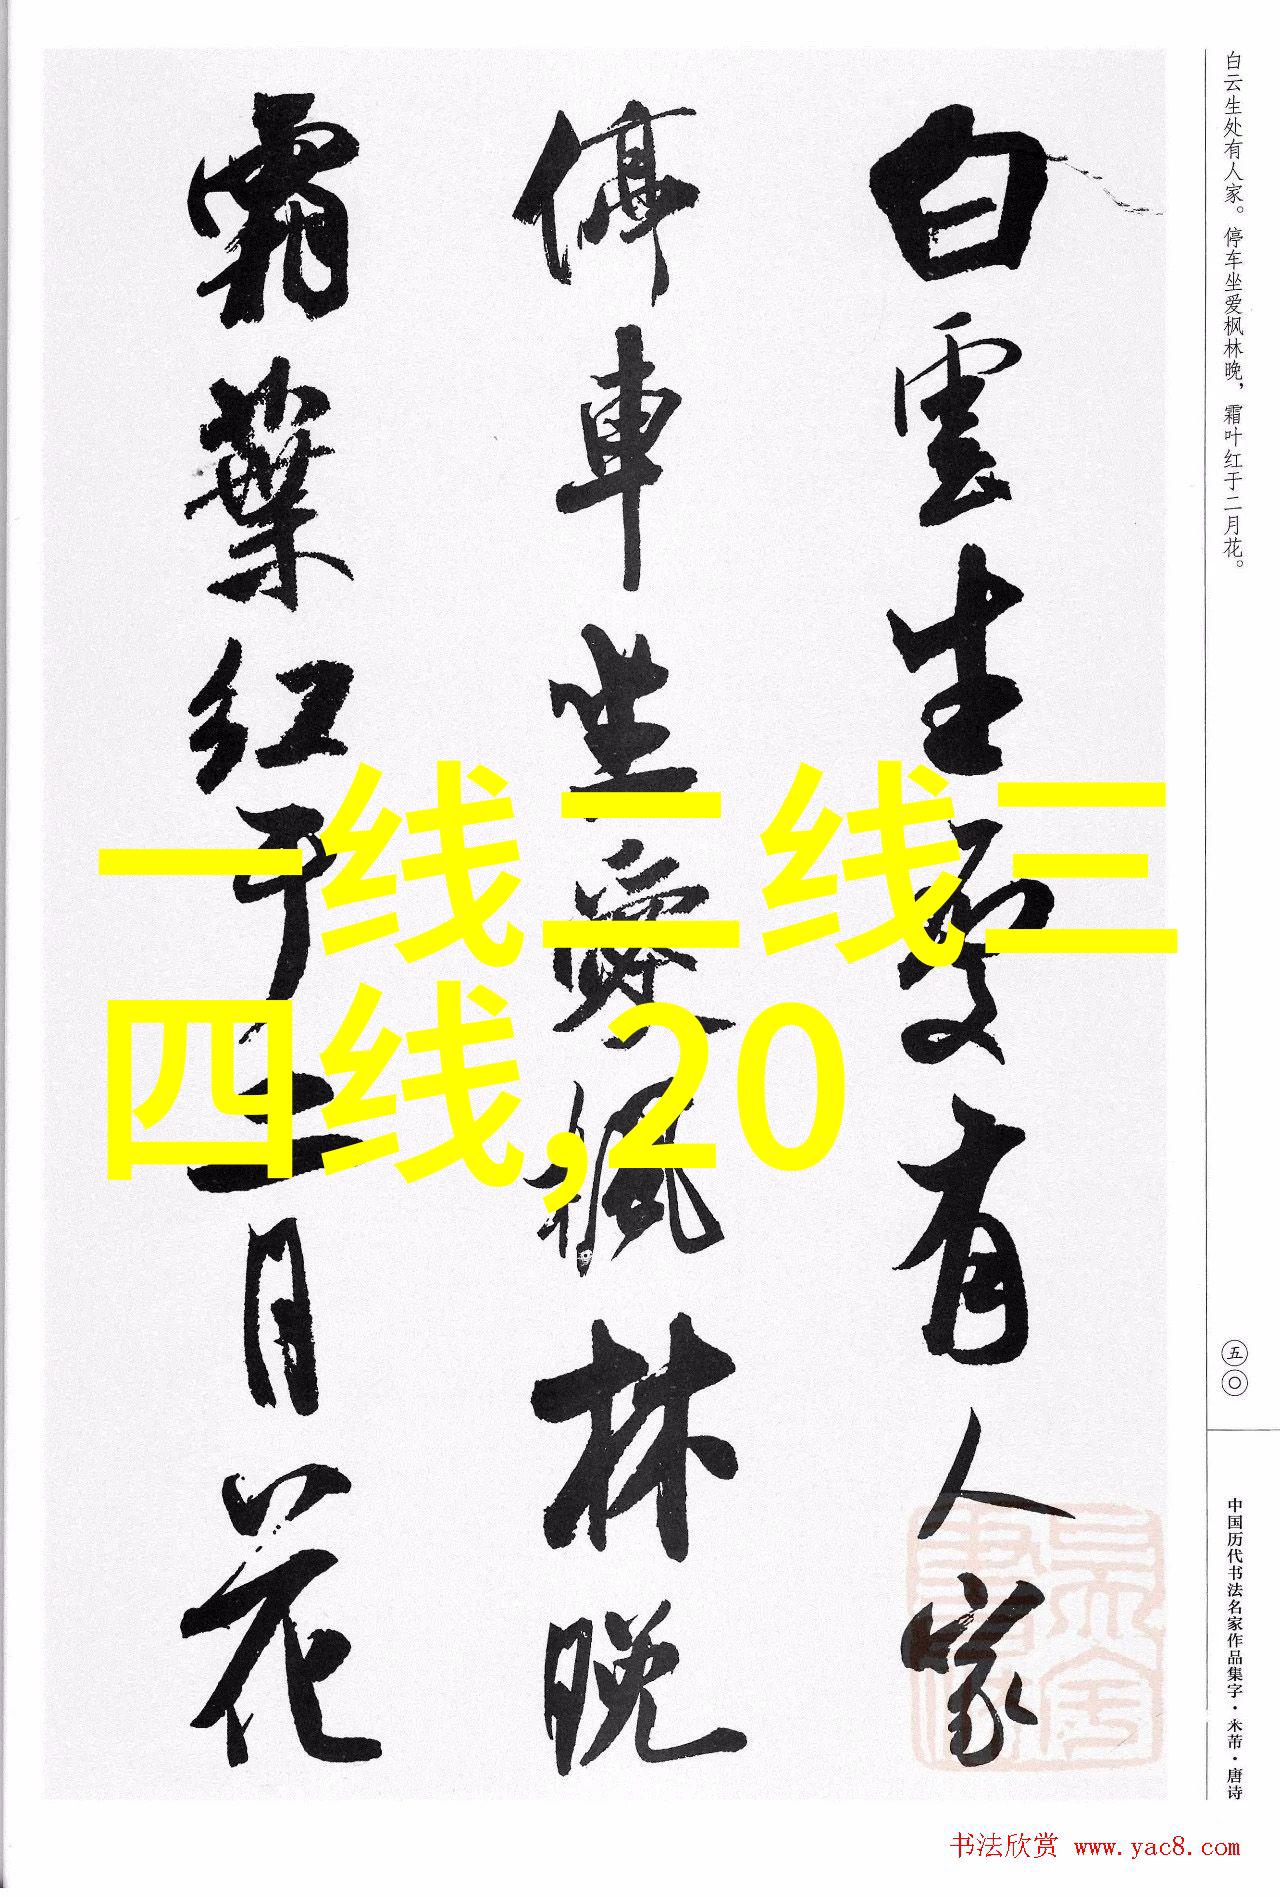 白雲生處有人家
停車坐愛楓林晚
霜葉红于二月花
一线二线三
四线,20
白云生处有人家。停车坐爱枫林晚，霜叶红于二月花。
五〇
中国历代书法名家作品集字·米芾·唐诗
书法欣赏 www.yac8.com